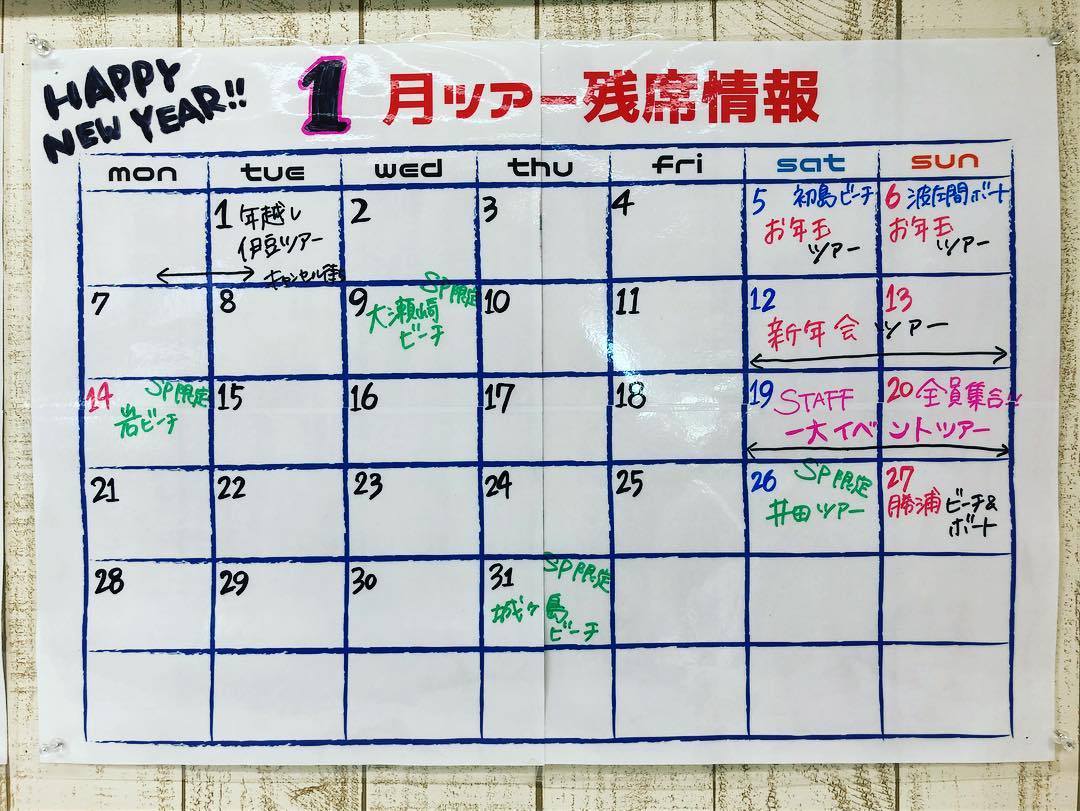 HAPPY
NEW YEAR!!
1月ツアー残席情報
mon tue wed thu fri sat sun
1 年越し
伊豆ツアー
キャンセル待ち
2
3
4
5 初島ビーチ
お年玉
ツアー
6 波左間ボート
お年玉
ツアー
7
8
9 SP限定
大瀬崎
ビーチ
10
11
12 13
新年会 ツアー
14 SP限定
岩ビーチ
15
16
17
18
19 STAFF 20 全員集合!!
一大イベントツアー
21
22
23
24
25
26 SP限定
井田ツアー
27
勝浦 ビーチ&
ボート
28
29
30
31 SP限定
城ヶ島
ビーチ